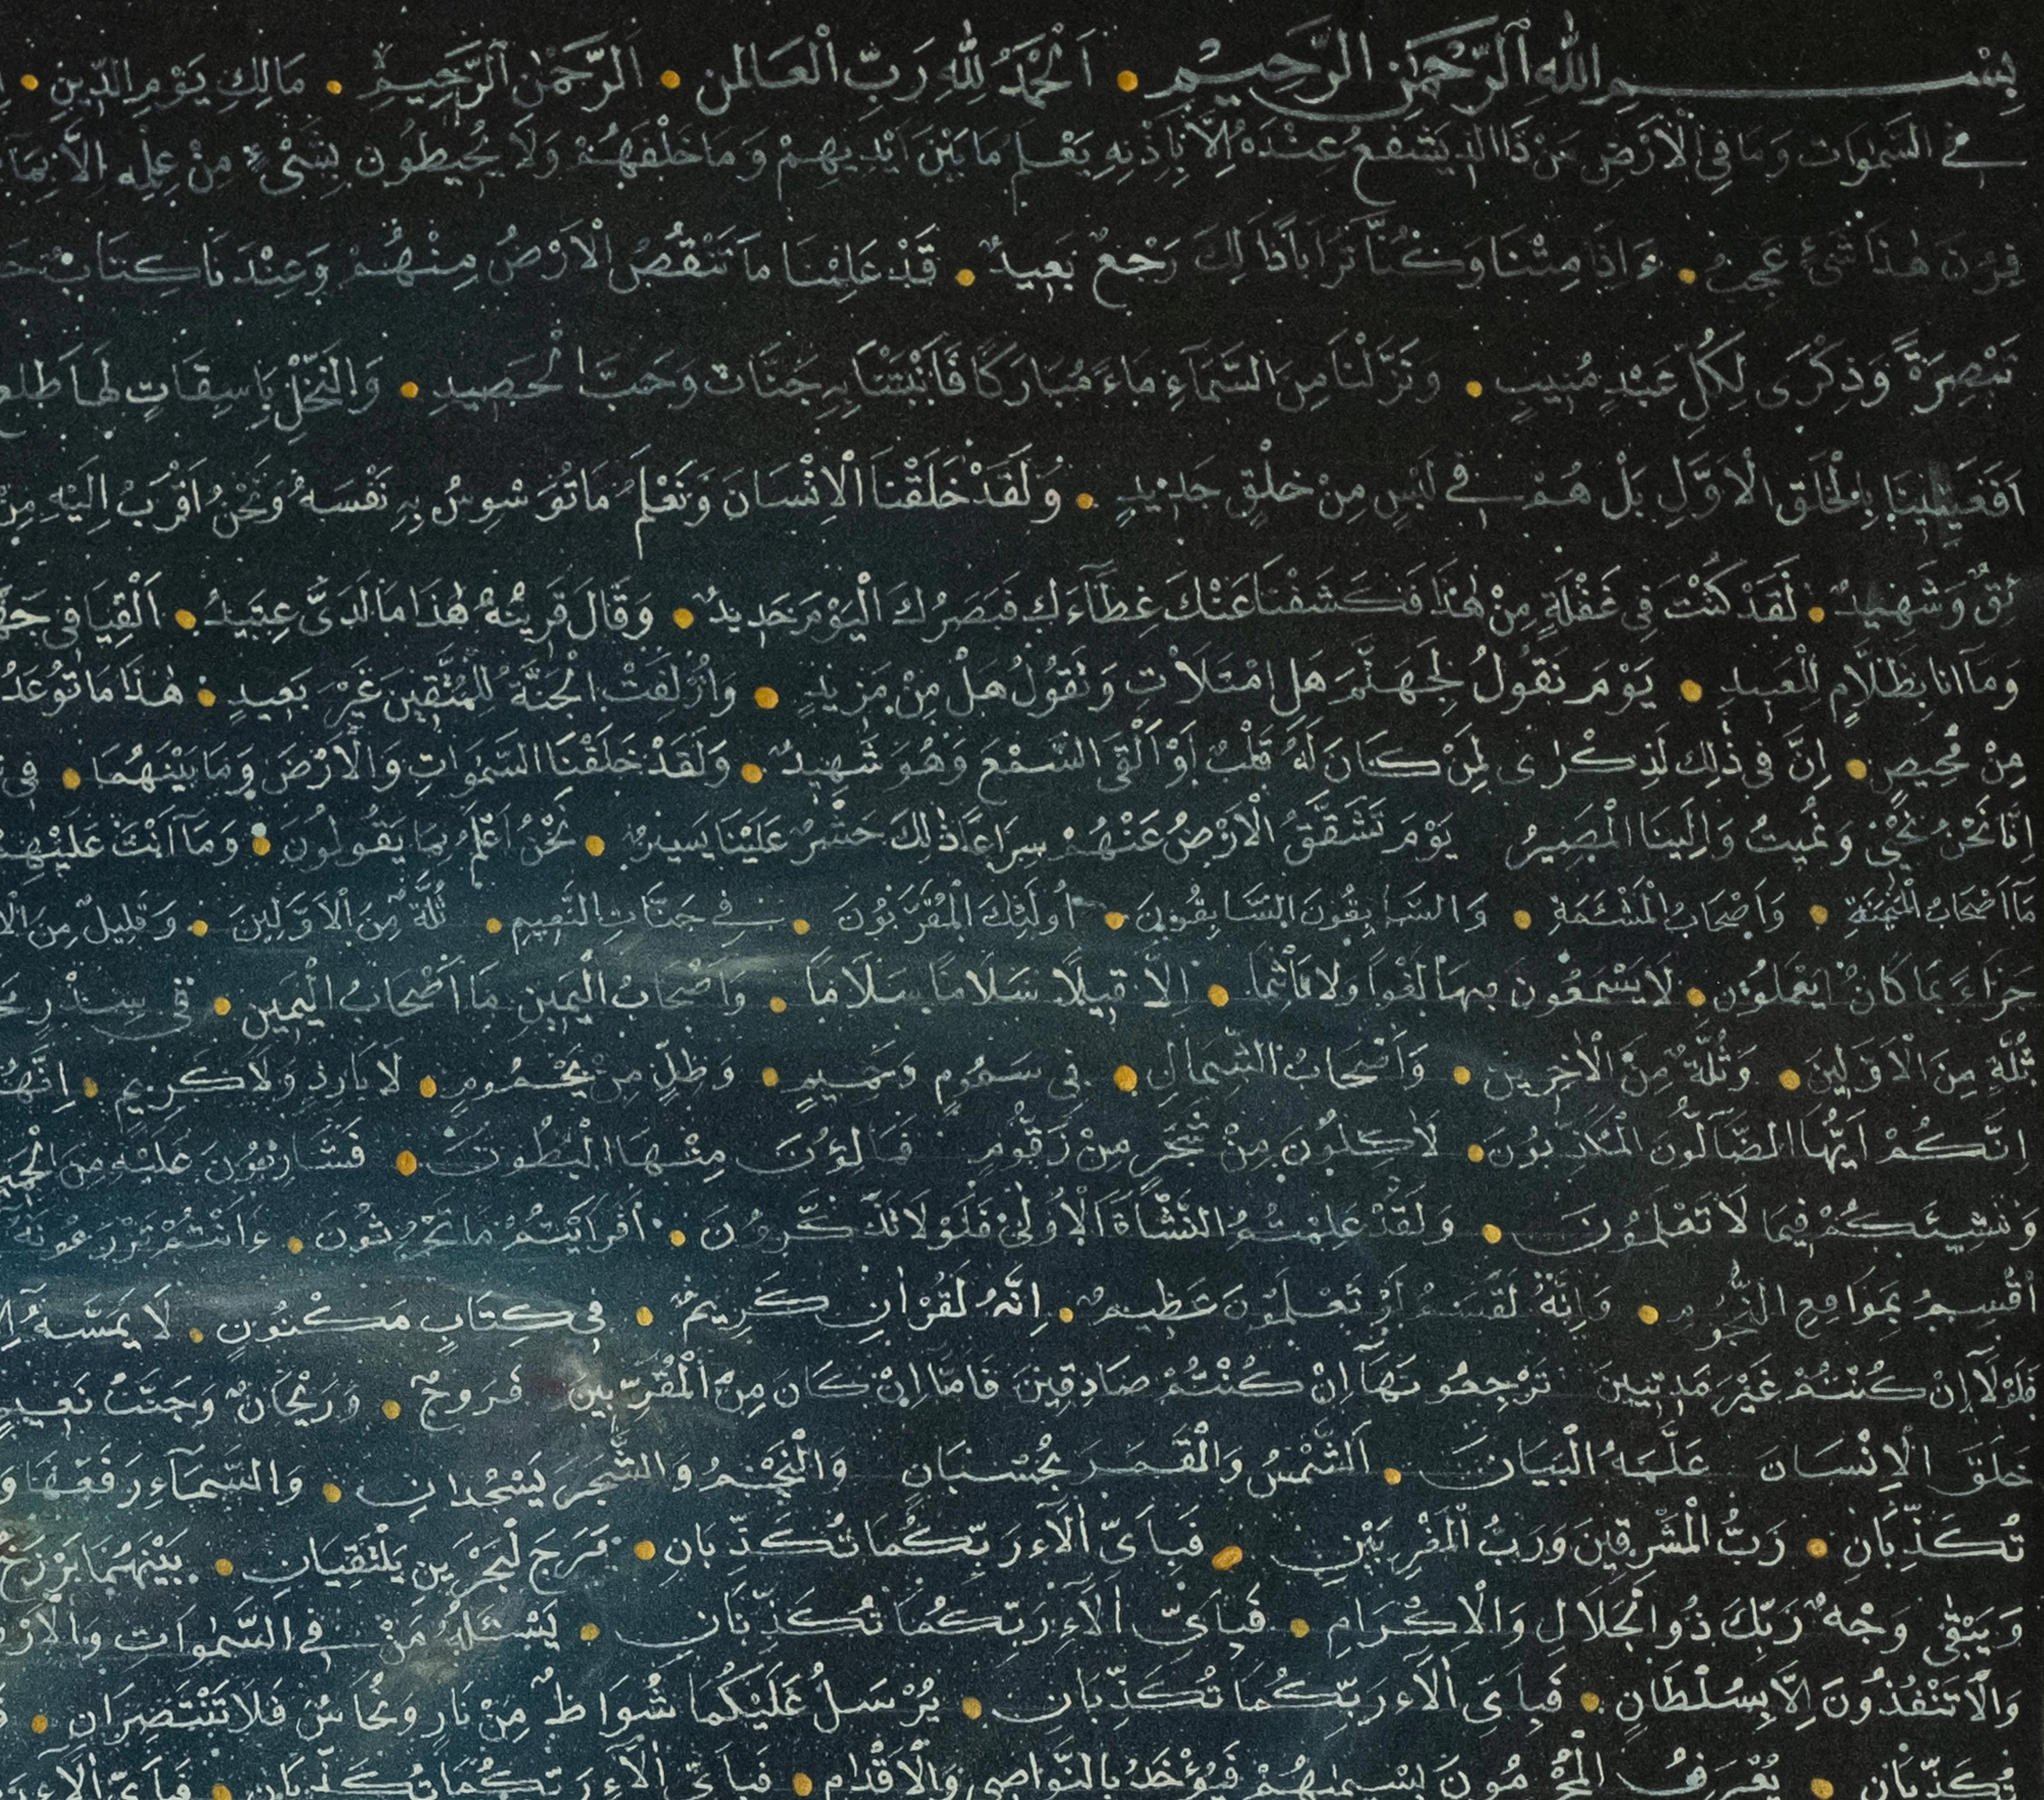 بِسْمِ اللهِ الرَّحْمٰنِ الرَّحِيْمِ اَلْحَمْدُ لِلّٰهِ رَبِّ الْعَالمن الرَّحْمٰنِ الرَّحِيمِ مَالِكِ يَوْمِ الدِّينِ
فِي السَّمٰوَات وَمَا فِي الْاَرْضِ مَنْ ذَا الذي يَشْفَعُ عِنْدَهُ اِلَّا بِاِذْنِهِ يَعْلَمُ مَا بَيْنَ اَيْدِيهِمْ وَمَا خَلْفَهُمْ وَلَا يُحِيطُون بِشَيْءٍ مِنْ عِلْمِهِ اِلَّا بِمَا
فِرُونَ هٰذَا شَيْءٌ عَجِيبٌ ءَاِذَا مِتْنَا وَكُنَّا تُرَابًا ذَالِكَ رَجْعٌ بَعِيدٌ قَدْ عَلِمْنَا مَا تَنْقُصُ الْاَرْضُ مِنْهُمْ وَعِنْدَنَا كِتَابٌ
تَبْصِرَةً وَذِكْرَى لِكُلِّ عَبْدٍ مُنِيبٍ وَنَزَّلْنَا مِنَ السَّمَاءِ مَاءً مُبَارَكًا فَاَنْبَتْنَا بِهِ جَنَّاتٍ وَحَبَّ الْحَصِيدِ وَالنَّخْلَ بَاسِقَاتٍ لَهَا طَلع
اَفَعَيِينَا بِالْخَلْقِ الْاَوَّلِ بَلْ هُمْ فِي لَبْسٍ مِنْ خَلْقٍ جَدِيدٍ وَلَقَدْ خَلَقْنَا الْاِنْسَانَ وَنَعْلَمُ مَا تُوَسْوِسُ بِهِ نَفْسَهُ وَنَحْنُ اَقْرَبُ اِلَيْهِ مِنْ
ئِقٌ وَشَهِيدٌ لَقَدْ كُنْتَ فِي غَفْلَةٍ مِنْ هٰذَا فَكَشَفْنَا عَنْكَ غِطَآءَكَ فَبَصَرُكَ الْيَوْمَ حَدِيدٌ وَقَالَ قَرِينُهُ هٰذَا مَا لَدَىَّ عتِيدٌ اَلْقِيَا فِى جَهَ
وَمَآ اَنَا بِظَلَّامٍ لِلْعَبِيدِ يَوْمَ نَقُولُ لِجَهَنَّمَ هَلِ امْتَلَأْتِ وَتَقُولُ هَلْ مِنْ مَزِيدٍ وَاُزْلِفَتِ الْجَنَّةُ لِلْمُتَّقِينَ غَيْرَ بَعِيدٍ هٰذَا مَا تُوعَدُ
مِنْ مَحِيصٍ اِنَّ فِي ذٰلِكَ لَذِكْرٰى لِمَنْ كَانَ لَهُ قَلْبٌ اَوْ اَلْقَى السَّمْعَ وَهُوَ شَهِيدٌ وَلَقَدْ خَلَقْنَا السَّمٰوَاتِ وَالْاَرْضَ وَمَا بَيْنَهُمَا فِى
اِنَّا نَحْنُ نُحْيِي وَنُمِيتُ وَاِلَيْنَا الْمَصِيرُ يَوْمَ تَشَقَّقُ الْاَرْضُ عَنْهُمْ سِرَاعًا ذٰلِكَ حَشْرٌ عَلَيْنَا يَسِيرٌ نَحْنُ اَعْلَمُ بِمَا يَقُولُونَ وَمَآ اَنْتَ عَلَيْهِم
مَآ اَصْحَابُ الْمَيْمَنَةِ وَاَصْحَابُ الْمَشْئَمَةِ وَالسَّابِقُونَ السَّابِقُونَ اُولٰئِكَ الْمُقَرَّبُونَ فِي جَنَّاتِ النَّعِيمِ ثُلَّةٌ مِنَ الْاَوَّلِينَ وَقَلِيلٌ مِنَ الْا
جَزَاءً بِمَا كَانُوا يَعْمَلُونَ لَا يَسْمَعُونَ فِيهَا لَغْوًا وَلَا تَأْثِيمًا اِلَّا قِيلًا سَلَامًا سَلَامًا وَاَصْحَابُ الْيَمِينِ مَا اَصْحَابُ الْيَمِينِ فِي سِدْرٍ
ثُلَّةٌ مِنَ الْاَوَّلِينَ وَثُلَّةٌ مِنَ الْاٰخِرِينَ وَاَصْحَابُ الشِّمَالِ فِى سَمُومٍ وَحَمِيمٍ وَظِلٍّ مِنْ يَحْمُومٍ لَا بَارِدٍ وَلَا كَرِيمٍ اِنَّهُ
اِنَّكُمْ اَيُّهَا الضَّآلُّونَ الْمُكَذِّبُونَ لَاٰكِلُونَ مِنْ شَجَرٍ مِنْ زَقُّومٍ فَمَالِؤُنَ مِنْهَا الْبُطُونَ فَشَارِبُونَ عَلَيْهِ مِنَ الْحَمِي
وَنُنْشِئَكُمْ فِيمَا لَا تَعْلَمُونَ وَلَقَدْ عَلِمْتُمُ النَّشْاَةَ الْاُولٰى فَلَوْلَا تَذَكَّرُونَ اَفَرَاَيْتُمْ مَا تَحْرُثُونَ ءَاَنْتُمْ تَزْرَعُونَهُ
اُقْسِمُ بِمَوَاقِعِ النُّجُومِ وَاِنَّهُ لَقَسَمٌ لَوْ تَعْلَمُونَ عَظِيمٌ اِنَّهُ لَقُرْاٰنٌ كَرِيمٌ فِي كِتَابٍ مَكْنُونٍ لَا يَمَسُّهُ اِلَّ
فَلَوْلَآ اِنْ كُنْتُمْ غَيْرَ مَدِينِينَ تَرْجِعُونَهَآ اِنْ كُنْتُمْ صَادِقِينَ فَاَمَّا اِنْ كَانَ مِنَ الْمُقَرَّبِينَ فَرَوْحٌ وَرَيْحَانٌ وَجَنَّتُ نَعِيمٍ
خَلَقَ الْاِنْسَانَ عَلَّمَهُ الْبَيَانَ اَلشَّمْسُ وَالْقَمَرُ بِحُسْبَانٍ وَالنَّجْمُ وَالشَّجَرُ يَسْجُدَانِ وَالسَّمَآءَ رَفَعَهَا وَ
تُكَذِّبَانِ رَبُّ الْمَشْرِقَيْنِ وَرَبُّ الْمَغْرِبَيْنِ فَبِاَىِّ اٰلَآءِ رَبِّكُمَا تُكَذِّبَانِ مَرَجَ الْبَحْرَيْنِ يَلْتَقِيَانِ بَيْنَهُمَا بَرْزَخٌ
وَيَبْقٰى وَجْهُ رَبِّكَ ذُو الْجَلَالِ وَالْاِكْرَامِ فَبِاَىِّ اٰلَآءِ رَبِّكُمَا تُكَذِّبَانِ يَسْئَلُهُ مَنْ فِي السَّمٰوَاتِ وَالْاَرْ
وَالْاَ تَنْفُذُونَ اِلَّا بِسُلْطَانٍ فَبِاَىِّ اٰلَآءِ رَبِّكُمَا تُكَذِّبَانِ يُرْسَلُ عَلَيْكُمَا شُوَاظٌ مِنْ نَارٍ وَنُحَاسٌ فَلَا تَنْتَصِرَانِ
تُكَذِّبَانِ يُعْرَفُ الْمُجْرِمُونَ بِسِيمٰيهُمْ فَيُؤْخَذُ بِالنَّوَاصِي وَالْاَقْدَامِ فَبِاَىِّ اٰلَآءِ رَبِّكُمَا تُكَذِّبَانِ فَبِاَىِّ اٰلَآءِ